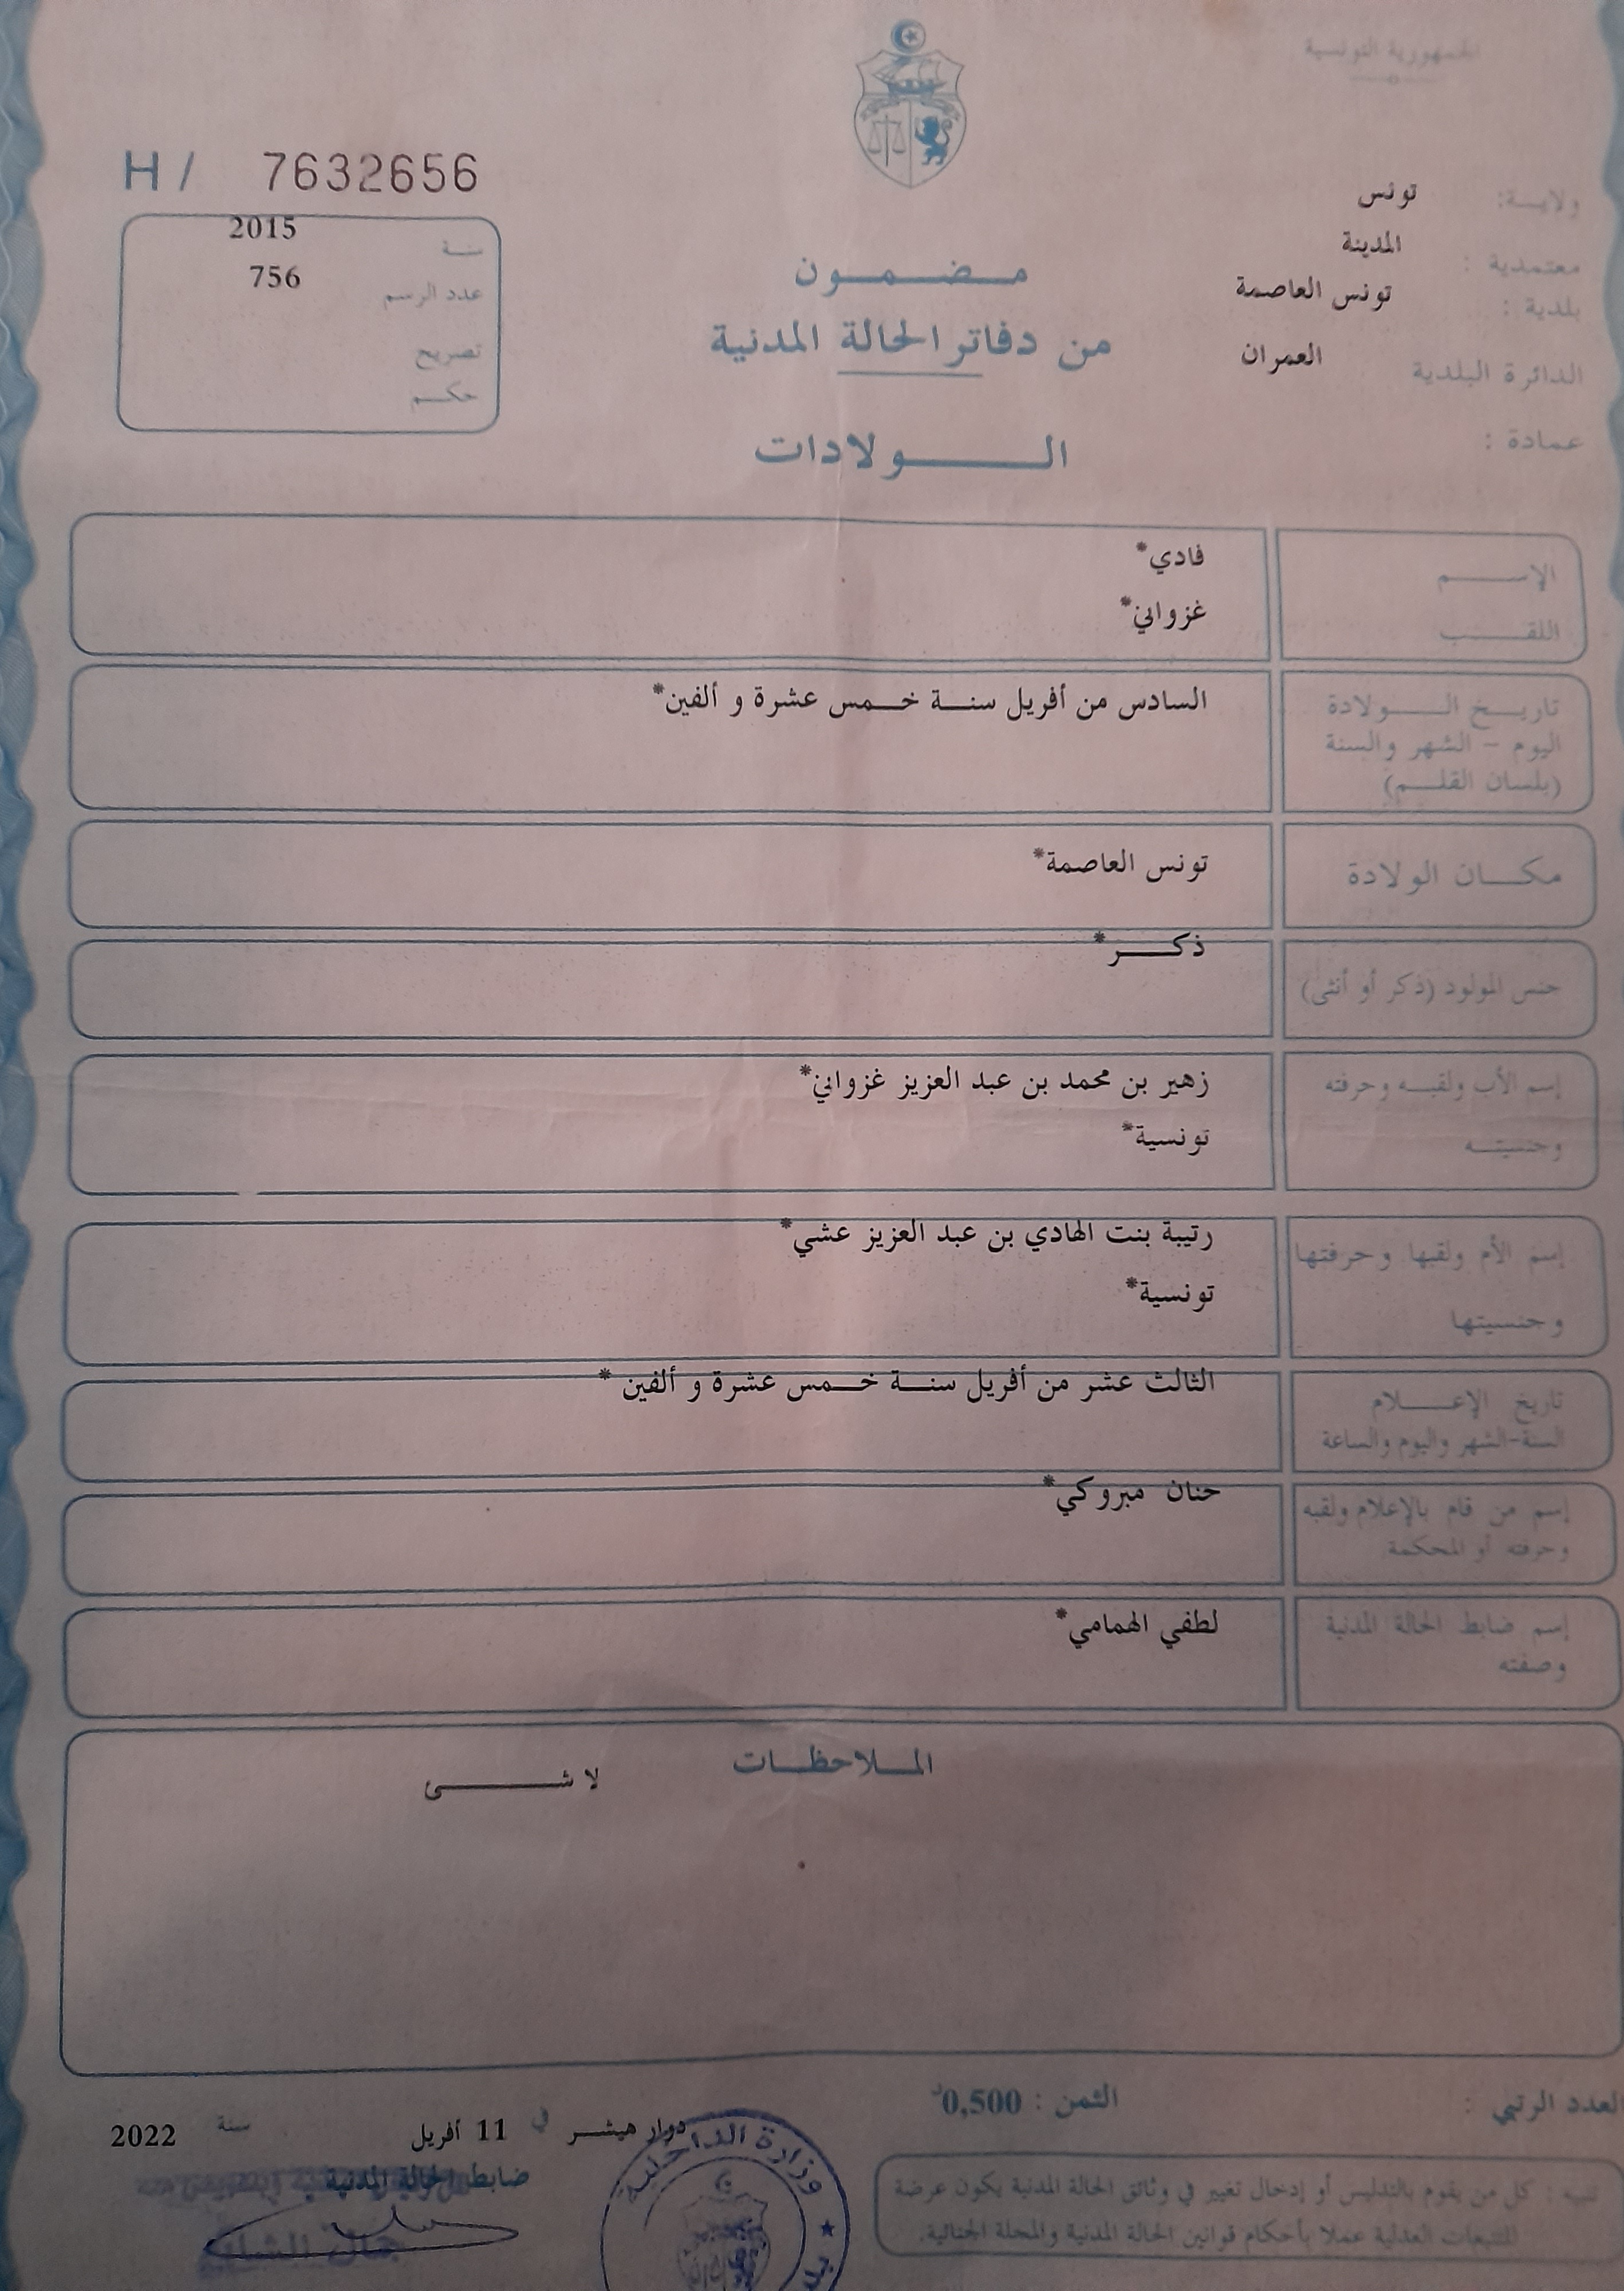 الجمهورية التونسية
H / 7632656
ولايـــة: تونس
معتمدية : المدينة
بلدية : تونس العاصمة
الدائرة البلدية العمران
عمادة :
سنـــة 2015
عدد الرسم 756
تصريح
حكـــم
مـــضـــمـــون
من دفاتر الحالة المدنية
الـــولادات
الإســـــم فادي*
اللقـــــب غزواني*
تاريـــخ الـــــولادة السادس من أفريل سنـــة خـــمس عشرة و ألفين*
اليوم – الشهر والسنة
(بلسان القلـــم)
مكـــان الولادة تونس العاصمة*
جنس المولود (ذكر أو أنثى) ذكـــر*
إسم الأب ولقبـــه وحرفته زهير بن محمد بن عبد العزيز غزواني*
وجنسيتـــه تونسية*
إسم الأم ولقبها وحرفتها رتيبة بنت الهادي بن عبد العزيز عشي*
وجنسيتها تونسية*
تاريخ الإعـــــلام الثالث عشر من أفريل سنـــة خـــمس عشرة و ألفين *
السنة-الشهر واليوم والساعة
إسم من قام بالإعلام ولقبه حنان مبروكي*
وحرفته أو المحكمة
إسم ضابط الحالة المدنية لطفي الهمامي*
وصفته
المـــلاحظـــات
لا شـــــئ
العدد الرتبي :
الثمن : 0,500د
دوار هيشـــر في 11 أفريل سنة 2022
ضابط الحالة المدنية
وزارة الداخلية
تنبيه : كل من يقوم بالتدليس أو إدخال تغيير في وثائق الحالة المدنية يكون عرضة
للتتبعات العدلية عملا بأحكام قوانين الحالة المدنية والمجلة الجنائية.